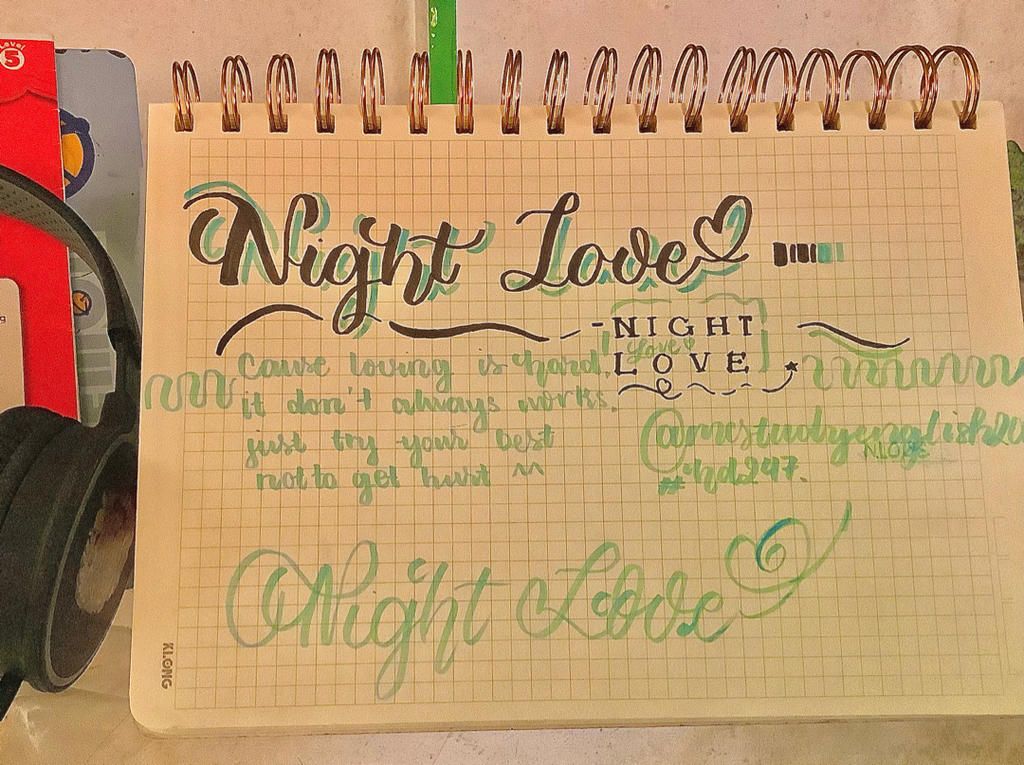 Level
5
Night Love
NIGHT
Love
LOVE
Cause loving is hard,
it don't always works.
just try your best
not to get hurt ^^
@mcstudyenglish20
N.LOVE
#hd247.
Night Love
KLONG